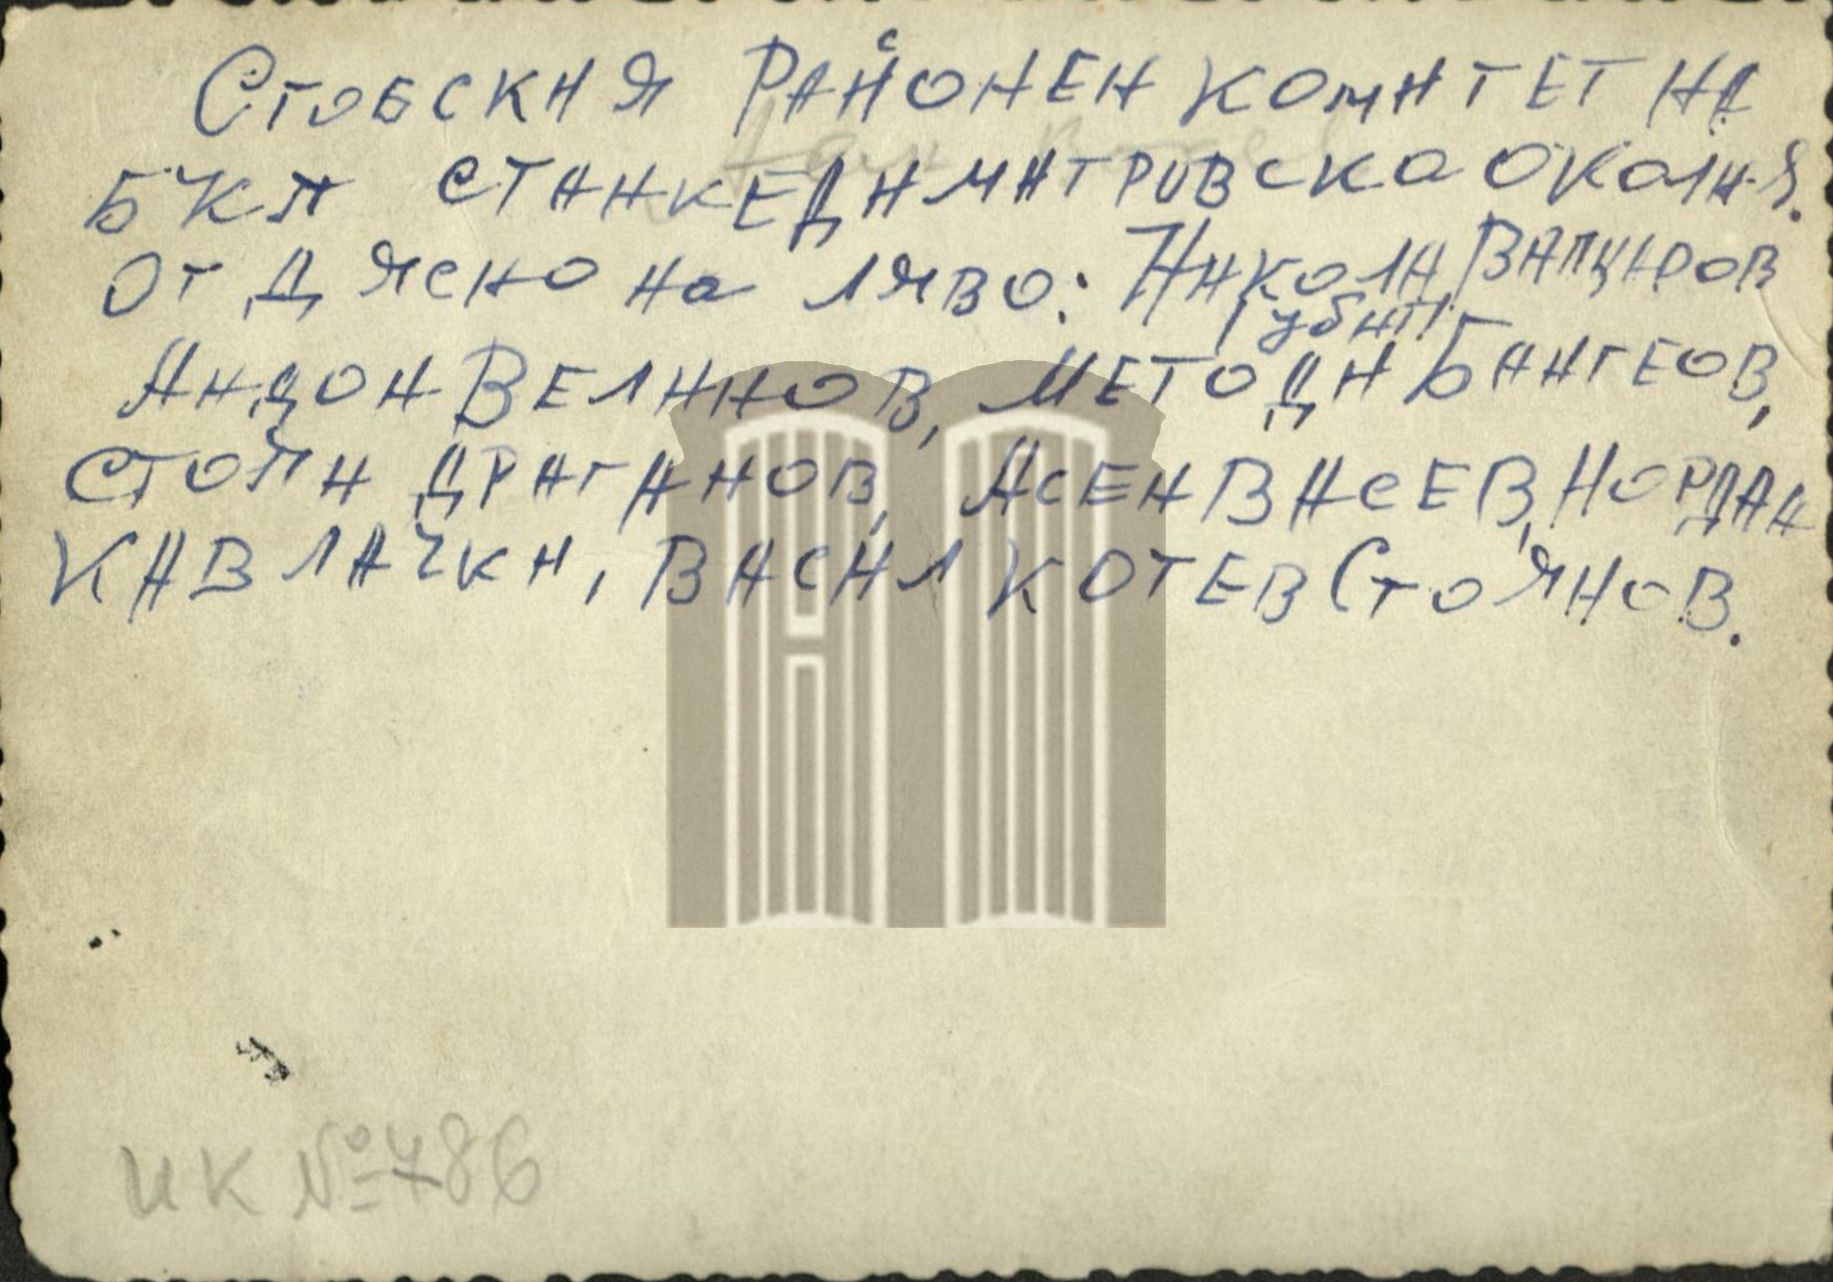 Стобския РАЙОНЕН КОМИТЕТ НА
БКП СТАНКЕДИМИТРОВСКА ОКОЛИЯ.
От Дясно на ляво: Никола ВАПЦАРОВ
Андон ВЕЛИНОВ, МЕТОДИ БАНГЕОВ,
СТОЯН ДРАГАНОВ, АСЕН ВАСЕВ, ЙОРДАН
КАВЛАЧКИ, ВАСИЛ КОТЕВ СТОЯНОВ.
ИК №786